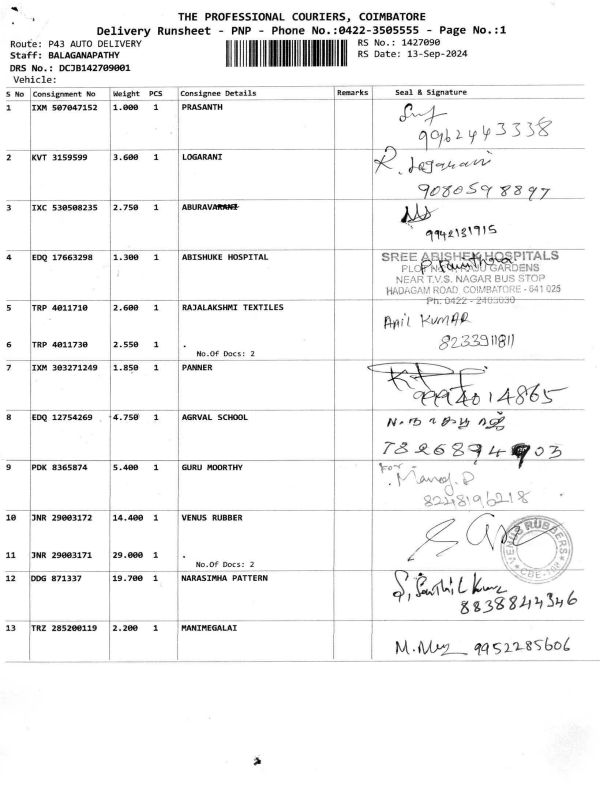 THE PROFESSIONAL COURIERS, COIMBATORE
Delivery Runsheet - PNP - Phone No.:0422-3505555 - Page No.:1
Route: P43 AUTO DELIVERY RS No.: 1427090
Staff: BALAGANAPATHY RS Date: 13-Sep-2024
DRS No.: DCJB142709001
Vehicle:
S No Consignment No Weight PCS Consignee Details Remarks Seal & Signature
1 IXM 507047152 1.000 1 PRASANTH
9962443338
2 KVT 3159599 3.600 1 LOGARANI R. Logarani
9080598897
3 IXC 530508235 2.750 1 ABURAVARANI
9942131915
4 EDQ 17663298 1.300 1 ABISHUKE HOSPITAL SREE ABISHEK HOSPITALS
GARDENS
NEAR T.V.S. NAGAR BUS STOP
HADAGAM ROAD, COIMBATORE - 641 025
Ph: 0422 - 2403030
5 TRP 4011710 2.600 1 RAJALAKSHMI TEXTILES ANIL KUMAR
6 TRP 4011730 2.550 1 . 8233911811
No.Of Docs: 2
7 IXM 303271249 1.850 1 PANNER
9994014865
8 EDQ 12754269 4.750 1 AGRVAL SCHOOL
9 PDK 8365874 5.400 1 GURU MOORTHY For
Manoj. P
8248196218
10 JNR 29003172 14.400 1 VENUS RUBBER
VENUS RUBBERS
11 JNR 29003171 29.000 1 .
No.Of Docs: 2
12 DDG 871337 19.700 1 NARASIMHA PATTERN S. Senthil Kumar
8838844346
13 TRZ 285200119 2.200 1 MANIMEGALAI
9952285606